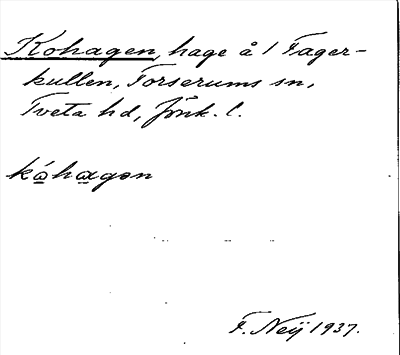 Kohagen, hage å 1 Fager-
kullen, Forserums sn,
Tveta hd, Jönk. l.
kóhagən
F. Neij 1937.